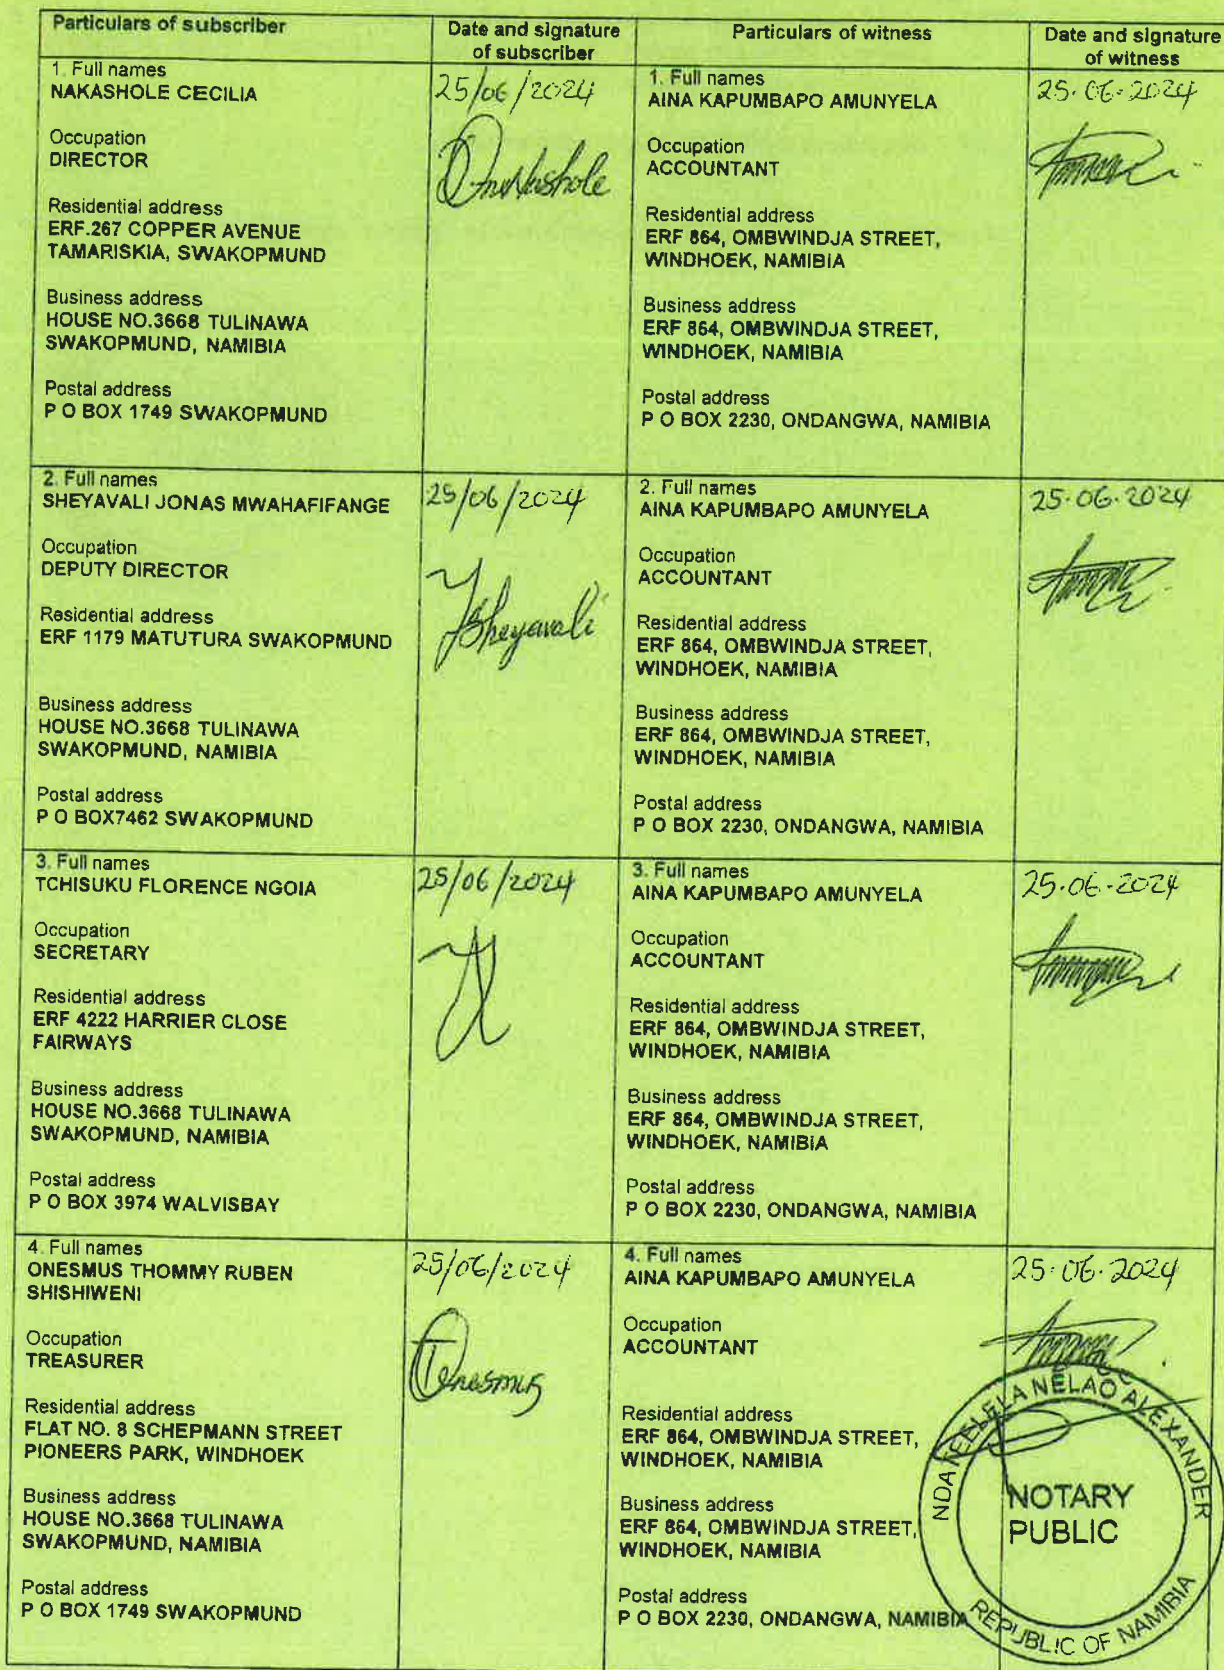 Particulars of subscriber
Date and signature
of subscriber
Particulars of witness
Date and signature
of witness
1. Full names
NAKASHOLE CECILIA
Occupation
DIRECTOR
Residential address
ERF.267 COPPER AVENUE
TAMARISKIA, SWAKOPMUND
Business address
HOUSE NO.3668 TULINAWA
SWAKOPMUND, NAMIBIA
Postal address
P O BOX 1749 SWAKOPMUND
25/06/2024
1. Full names
AINA KAPUMBAPO AMUNYELA
Occupation
ACCOUNTANT
Residential address
ERF 864, OMBWINDJA STREET,
WINDHOEK, NAMIBIA
Business address
ERF 864, OMBWINDJA STREET,
WINDHOEK, NAMIBIA
Postal address
P O BOX 2230, ONDANGWA, NAMIBIA
25.06.2024
2. Full names
SHEYAVALI JONAS MWAHAFIFANGE
Occupation
DEPUTY DIRECTOR
Residential address
ERF 1179 MATUTURA SWAKOPMUND
Business address
HOUSE NO.3668 TULINAWA
SWAKOPMUND, NAMIBIA
Postal address
P O BOX7462 SWAKOPMUND
25/06/2024
JSheyavali
2. Full names
AINA KAPUMBAPO AMUNYELA
Occupation
ACCOUNTANT
Residential address
ERF 864, OMBWINDJA STREET,
WINDHOEK, NAMIBIA
Business address
ERF 864, OMBWINDJA STREET,
WINDHOEK, NAMIBIA
Postal address
P O BOX 2230, ONDANGWA, NAMIBIA
25.06.2024
3. Full names
TCHISUKU FLORENCE NGOIA
Occupation
SECRETARY
Residential address
ERF 4222 HARRIER CLOSE
FAIRWAYS
Business address
HOUSE NO.3668 TULINAWA
SWAKOPMUND, NAMIBIA
Postal address
P O BOX 3974 WALVISBAY
25/06/2024
3. Full names
AINA KAPUMBAPO AMUNYELA
Occupation
ACCOUNTANT
Residential address
ERF 864, OMBWINDJA STREET,
WINDHOEK, NAMIBIA
Business address
ERF 864, OMBWINDJA STREET,
WINDHOEK, NAMIBIA
Postal address
P O BOX 2230, ONDANGWA, NAMIBIA
25.06.2024
4. Full names
ONESMUS THOMMY RUBEN
SHISHIWENI
Occupation
TREASURER
Residential address
FLAT NO. 8 SCHEPMANN STREET
PIONEERS PARK, WINDHOEK
Business address
HOUSE NO.3668 TULINAWA
SWAKOPMUND, NAMIBIA
Postal address
P O BOX 1749 SWAKOPMUND
25/06/2024
Onesmus
4. Full names
AINA KAPUMBAPO AMUNYELA
Occupation
ACCOUNTANT
Residential address
ERF 864, OMBWINDJA STREET,
WINDHOEK, NAMIBIA
Business address
ERF 864, OMBWINDJA STREET,
WINDHOEK, NAMIBIA
Postal address
P O BOX 2230, ONDANGWA, NAMIBIA
25.06.2024
NELAO ALEXANDER
NOTARY
PUBLIC
REPUBLIC OF NAMIBIA